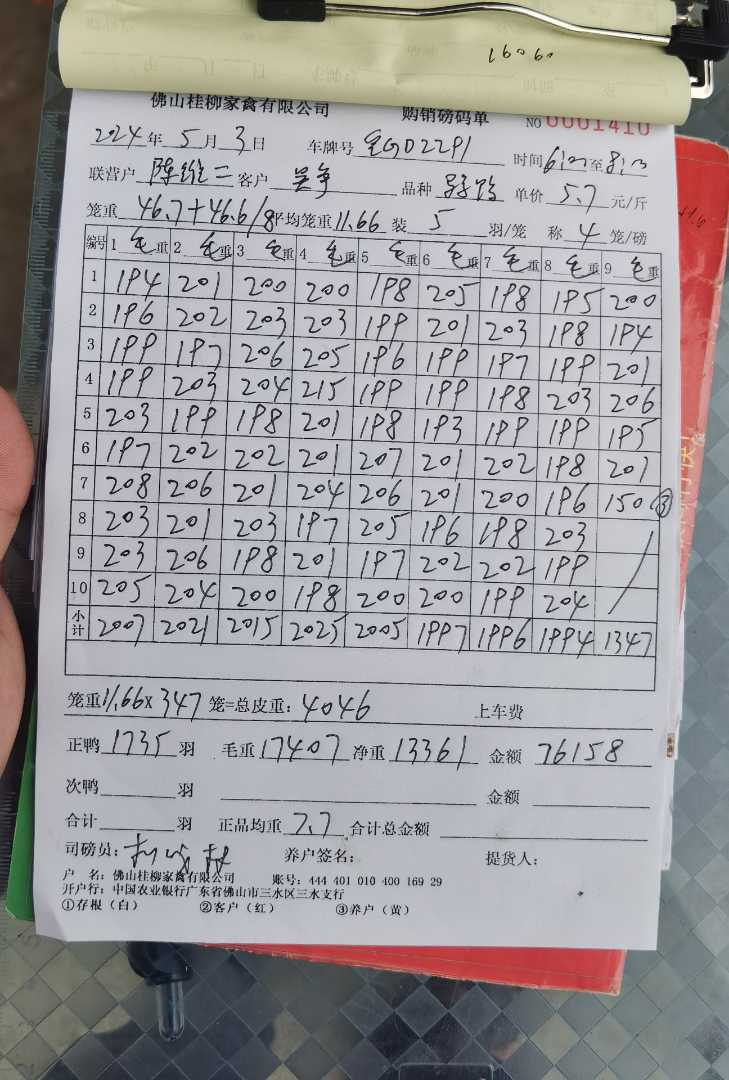 16060
佛山桂柳家禽有限公司 购销磅码单 NO 0001410
2024年5月3日 车牌号 GD2291 时间 至
联营户 陈维二 客户 品种 单价 5.7 元/斤
笼重 46.7+46.6/8 平均笼重 11.66 装 5 羽/笼 称 4 笼/磅
编号 1 毛重 2 毛重 3 毛重 4 毛重 5 毛重 6 毛重 7 毛重 8 毛重 9 毛重
1 194 201 200 200 198 205 198 195 200
2 196 202 203 203 199 201 203 198 194
3 199 197 206 205 196 199 197 199 201
4 199 203 204 215 199 199 198 203 206
5 203 199 198 201 198 193 199 199 195
6 197 202 202 201 207 201 202 198 201
7 208 206 201 204 206 201 200 196 150 ③
8 203 201 203 197 205 196 198 203
9 203 206 198 201 197 202 202 199
10 205 204 200 198 200 200 199 204
小计 2007 2021 2015 2025 2005 1997 1996 1994 1347
笼重 11.66x 347 笼=总皮重: 4046 上车费
正鸭 1735 羽 毛重 17407 净重 13361 金额 76158
次鸭 羽 金额
合计 羽 正品均重 7.7 合计总金额
司磅员: 养户签名: 提货人:
户 名: 佛山桂柳家禽有限公司 账号: 444 401 010 400 169 29
开户行: 中国农业银行广东省佛山市三水区三水支行
①存根（白） ②客户（红） ③养户（黄）